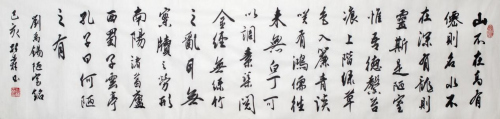 山不在高有
僊則名水不
在深有龍則
靈斯是陋室
惟吾德馨苔
痕上階綠草
色入簾青談
笑有鴻儒往
来無白丁可
以調素琴閱
金經無絲竹
之亂耳無
案牘之勞形
南陽諸葛廬
西蜀子雲亭
孔子曰何陋
之有
劉禹錫陋室銘
己亥